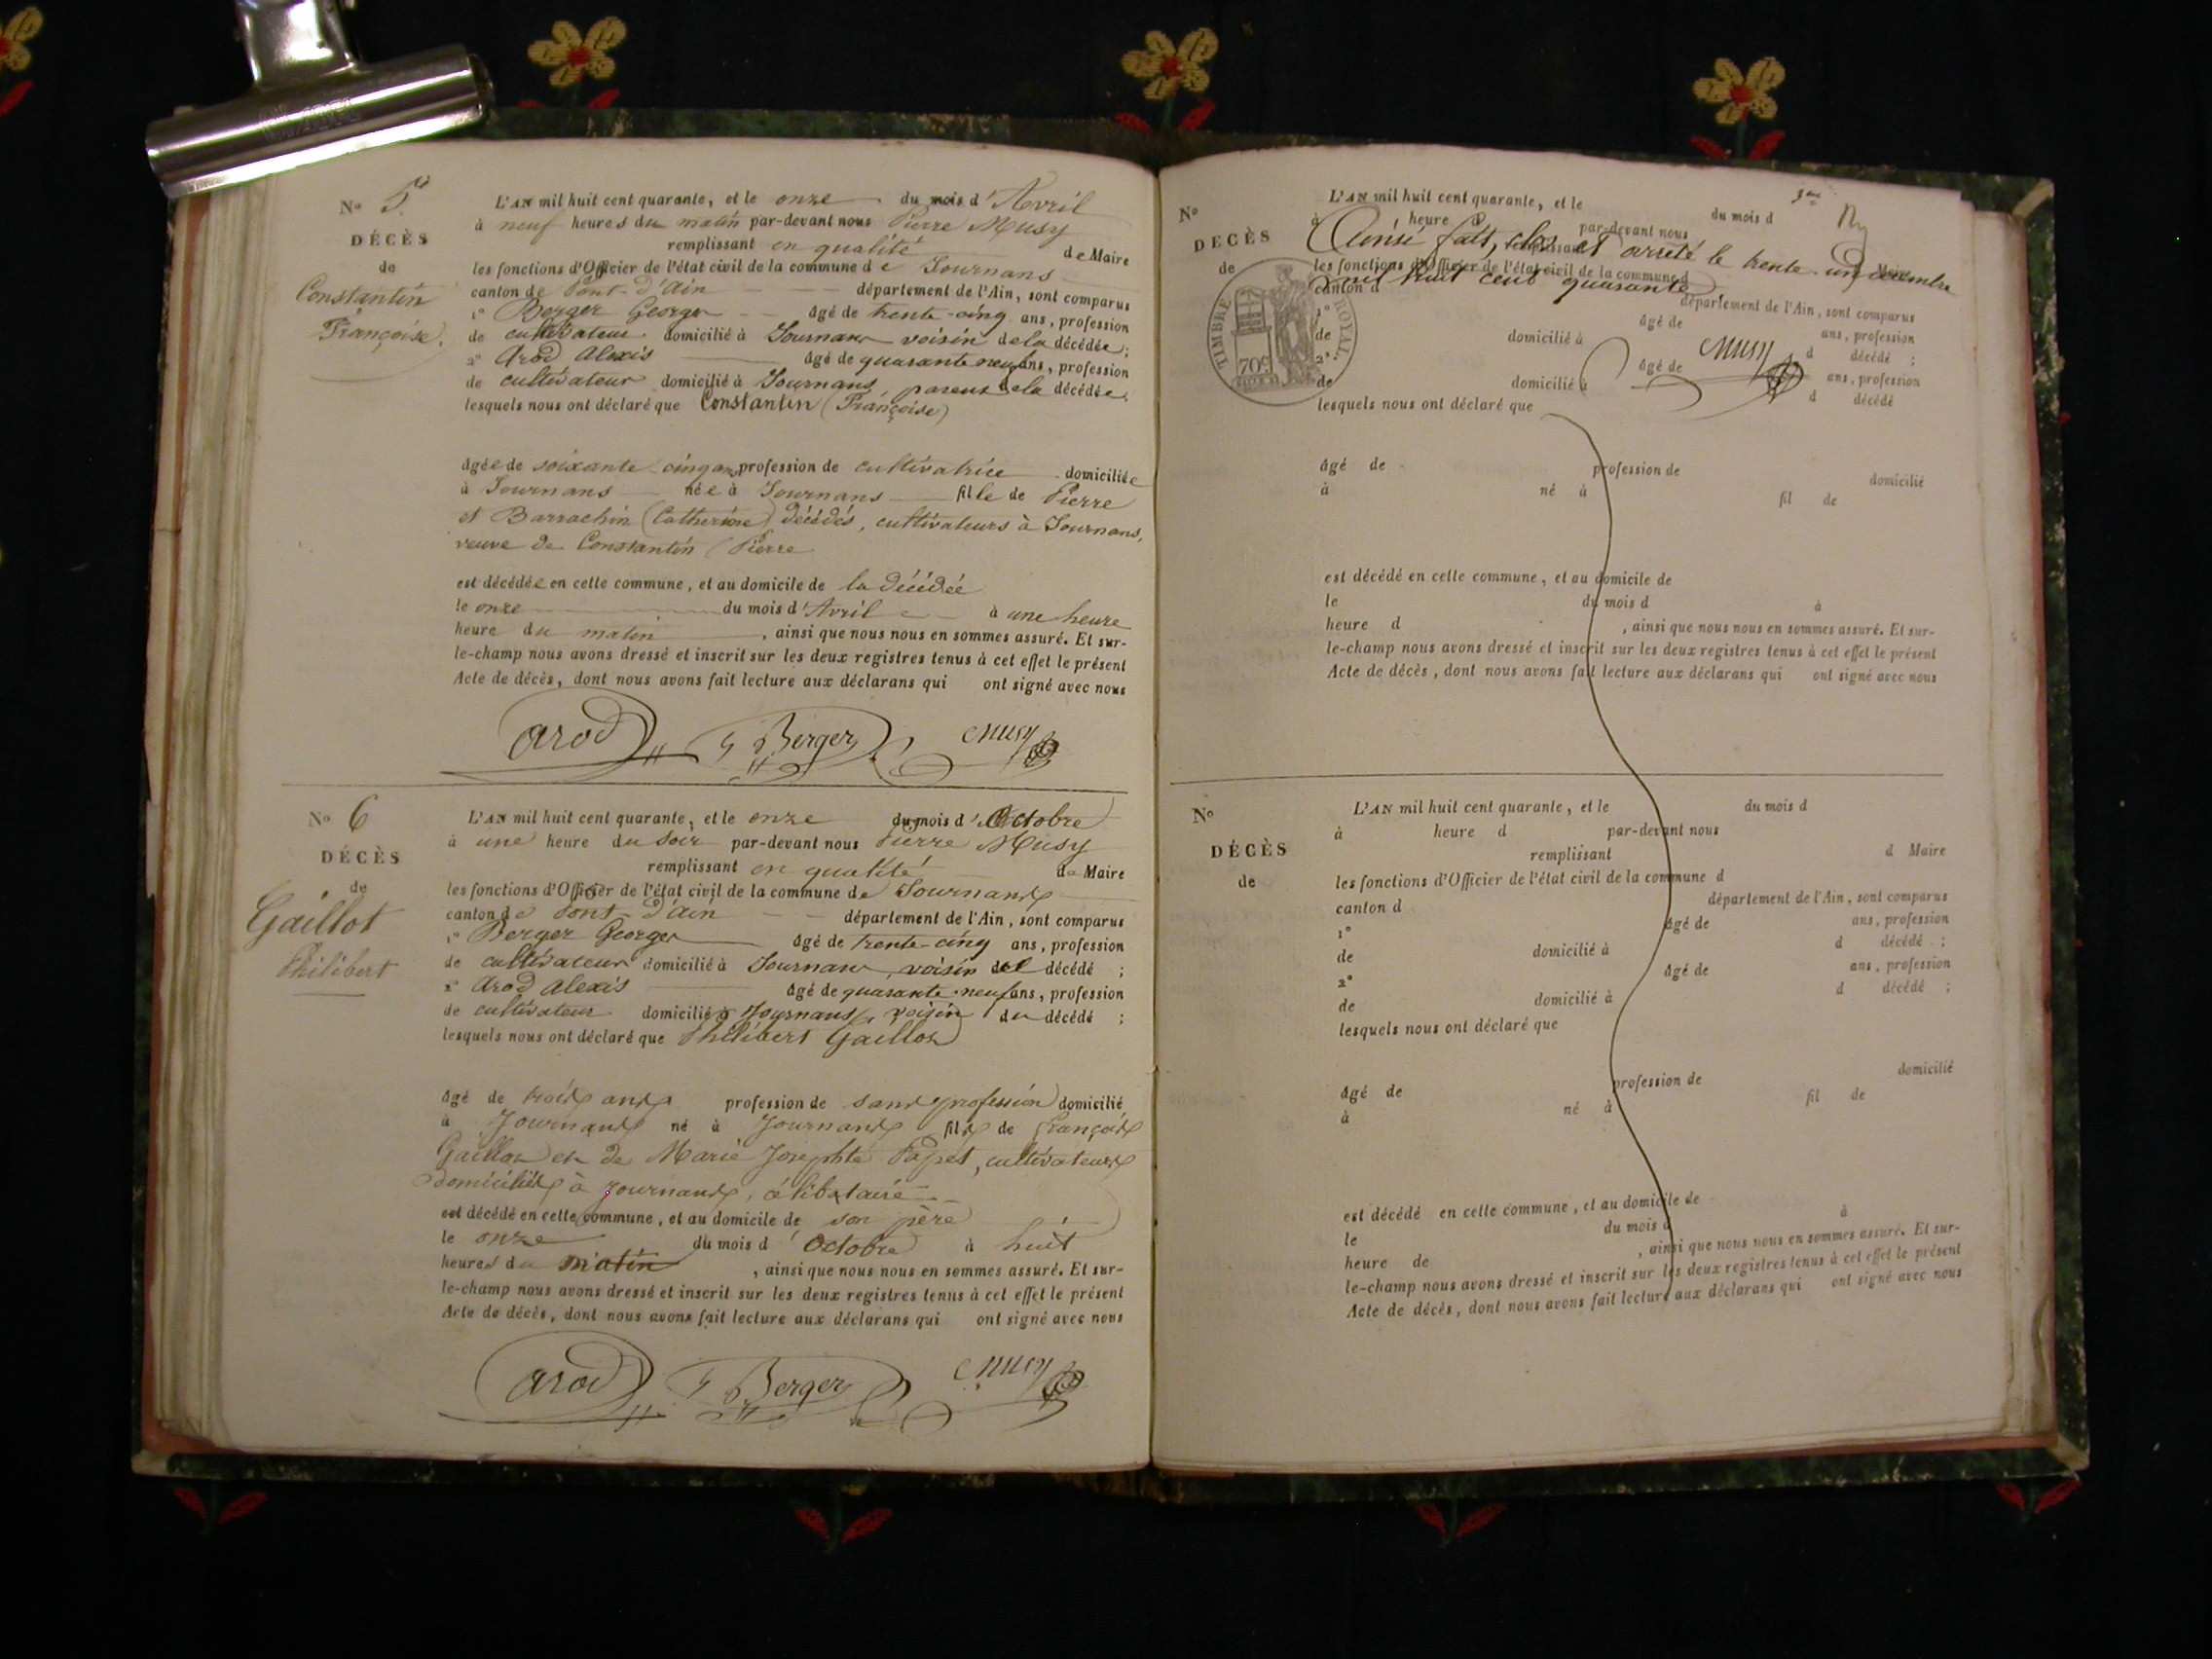 N° 5
DÉCÈS
de
Constantin
Françoise.
L'AN mil huit cent quarante, et le onze du mois d'Avril
à neuf heures du matin par-devant nous Pierre Musy
remplissant en qualité de Maire
les fonctions d'Officier de l'état civil de la commune de Journans
canton de Pont-d'Ain département de l'Ain, sont comparus
1° Berger George âgé de trente-cinq ans, profession
de cultivateur domicilié à Journans voisin de la décédée;
2° Arod Alexis âgé de quarante neuf ans, profession
de cultivateur domicilié à Journans, parent de la décédée,
lesquels nous ont déclaré que Constantin (Françoise)
âgée de soixante-cinq ans profession de cultivatrice domiciliée
à Journans née à Journans fille de Pierre
et Barrachin (Catherine) décédés, cultivateurs à Journans,
veuve de Constantin (Pierre
est décédée en cette commune, et au domicile de la décédée
le onze du mois d'Avril à une heure
heure du matin, ainsi que nous nous en sommes assuré. Et sur-
le-champ nous avons dressé et inscrit sur les deux registres tenus à cet effet le présent
Acte de décès, dont nous avons fait lecture aux déclarans qui ont signé avec nous
Arod G Berger Musy
N° 6
DÉCÈS
de
Gaillot
Philibert
L'AN mil huit cent quarante, et le onze du mois d'Octobre
à une heure du soir par-devant nous Pierre Musy
remplissant en qualité de Maire
les fonctions d'Officier de l'état civil de la commune de Journans
canton de Pont-d'Ain département de l'Ain, sont comparus
1° Berger George âgé de trente-cinq ans, profession
de cultivateur domicilié à Journans, voisin du décédé;
2° Arod Alexis âgé de quarante-neuf ans, profession
de cultivateur domicilié à Journans, voisin du décédé;
lesquels nous ont déclaré que Philibert Gaillot
âgé de trois ans profession de sans profession domicilié
à Journans né à Journans fils de François
Gaillot et de Marie Josephte Papet, cultivateurs
domiciliés à Journans, célibataire
est décédé en cette commune, et au domicile de son père
le onze du mois d'Octobre à huit
heures du matin, ainsi que nous nous en sommes assuré. Et sur-
le-champ nous avons dressé et inscrit sur les deux registres tenus à cet effet le présent
Acte de décès, dont nous avons fait lecture aux déclarans qui ont signé avec nous
Arod G Berger Musy
N°
DÉCÈS
de
TIMBRE ROYAL.
70c
L'AN mil huit cent quarante, et le du mois d
à heure d par-devant nous
Ainsi fait, clos et arrêté le trente-un décembre
remplissant d Maire
les fonctions d'Officier de l'état civil de la commune d
mil huit cent quarante
canton d département de l'Ain, sont comparus
1° âgé de ans, profession
de domicilié à d décédé;
Musy
2° âgé de ans, profession
de domicilié à d décédé
lesquels nous ont déclaré que
âgé de profession de domicilié
à né à fil de
est décédé en cette commune, et au domicile de
le du mois d à
heure d, ainsi que nous nous en sommes assuré. Et sur-
le-champ nous avons dressé et inscrit sur les deux registres tenus à cet effet le présent
Acte de décès, dont nous avons fait lecture aux déclarans qui ont signé avec nous
N°
DÉCÈS
de
L'AN mil huit cent quarante, et le du mois d
à heure d par-devant nous
remplissant d Maire
les fonctions d'Officier de l'état civil de la commune d
canton d département de l'Ain, sont comparus
1° âgé de ans, profession
de domicilié à d décédé;
2° âgé de ans, profession
de domicilié à d décédé;
lesquels nous ont déclaré que
âgé de profession de domicilié
à né à fil de
est décédé en cette commune, et au domicile de
le du mois d à
heure de, ainsi que nous nous en sommes assuré. Et sur-
le-champ nous avons dressé et inscrit sur les deux registres tenus à cet effet le présent
Acte de décès, dont nous avons fait lecture aux déclarans qui ont signé avec nous